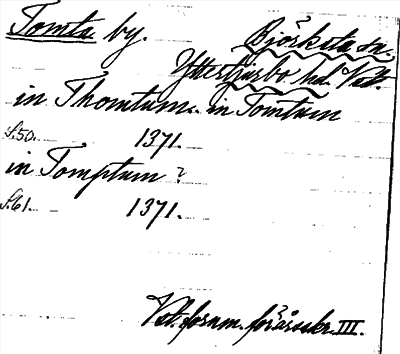 Tomta by. Björksta sn.
Yttertjurbo hd. Vstl.
in Thomtum. in Tomtum
s. 50. 1371.
in Tomptum?
s. 61. 1371.
Vstl. fornm. förårsskr. III.